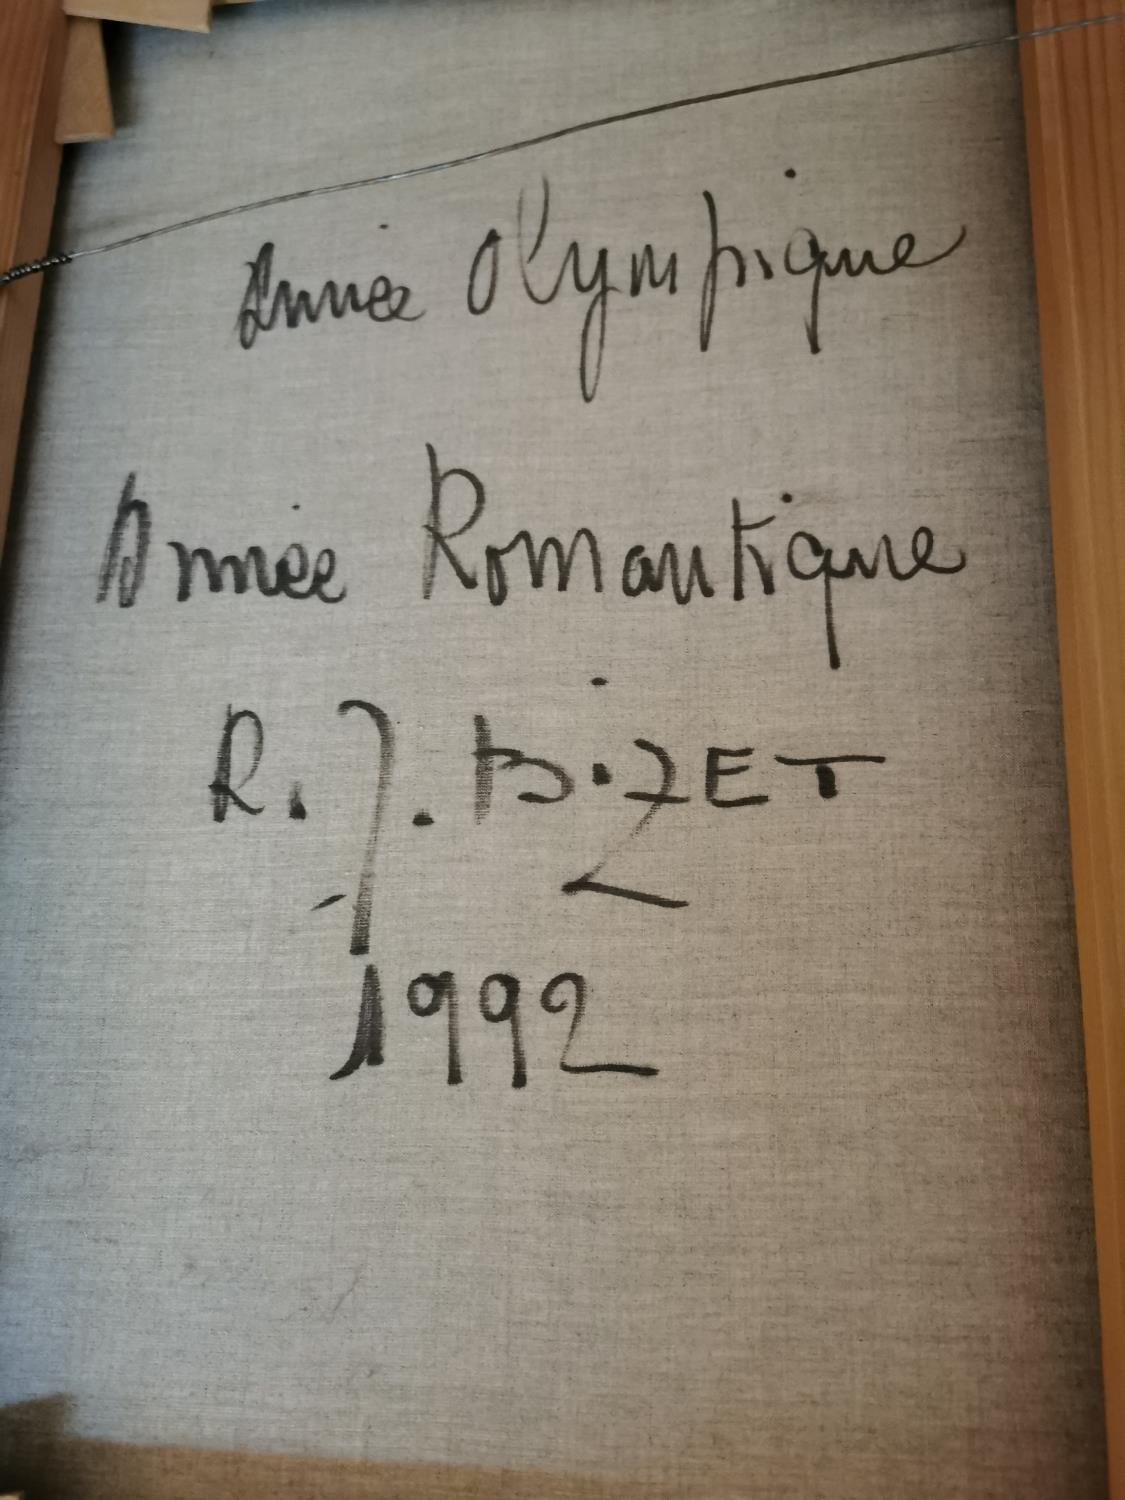 Année Olympique
Année Romantique
R. J. BiZET
1992